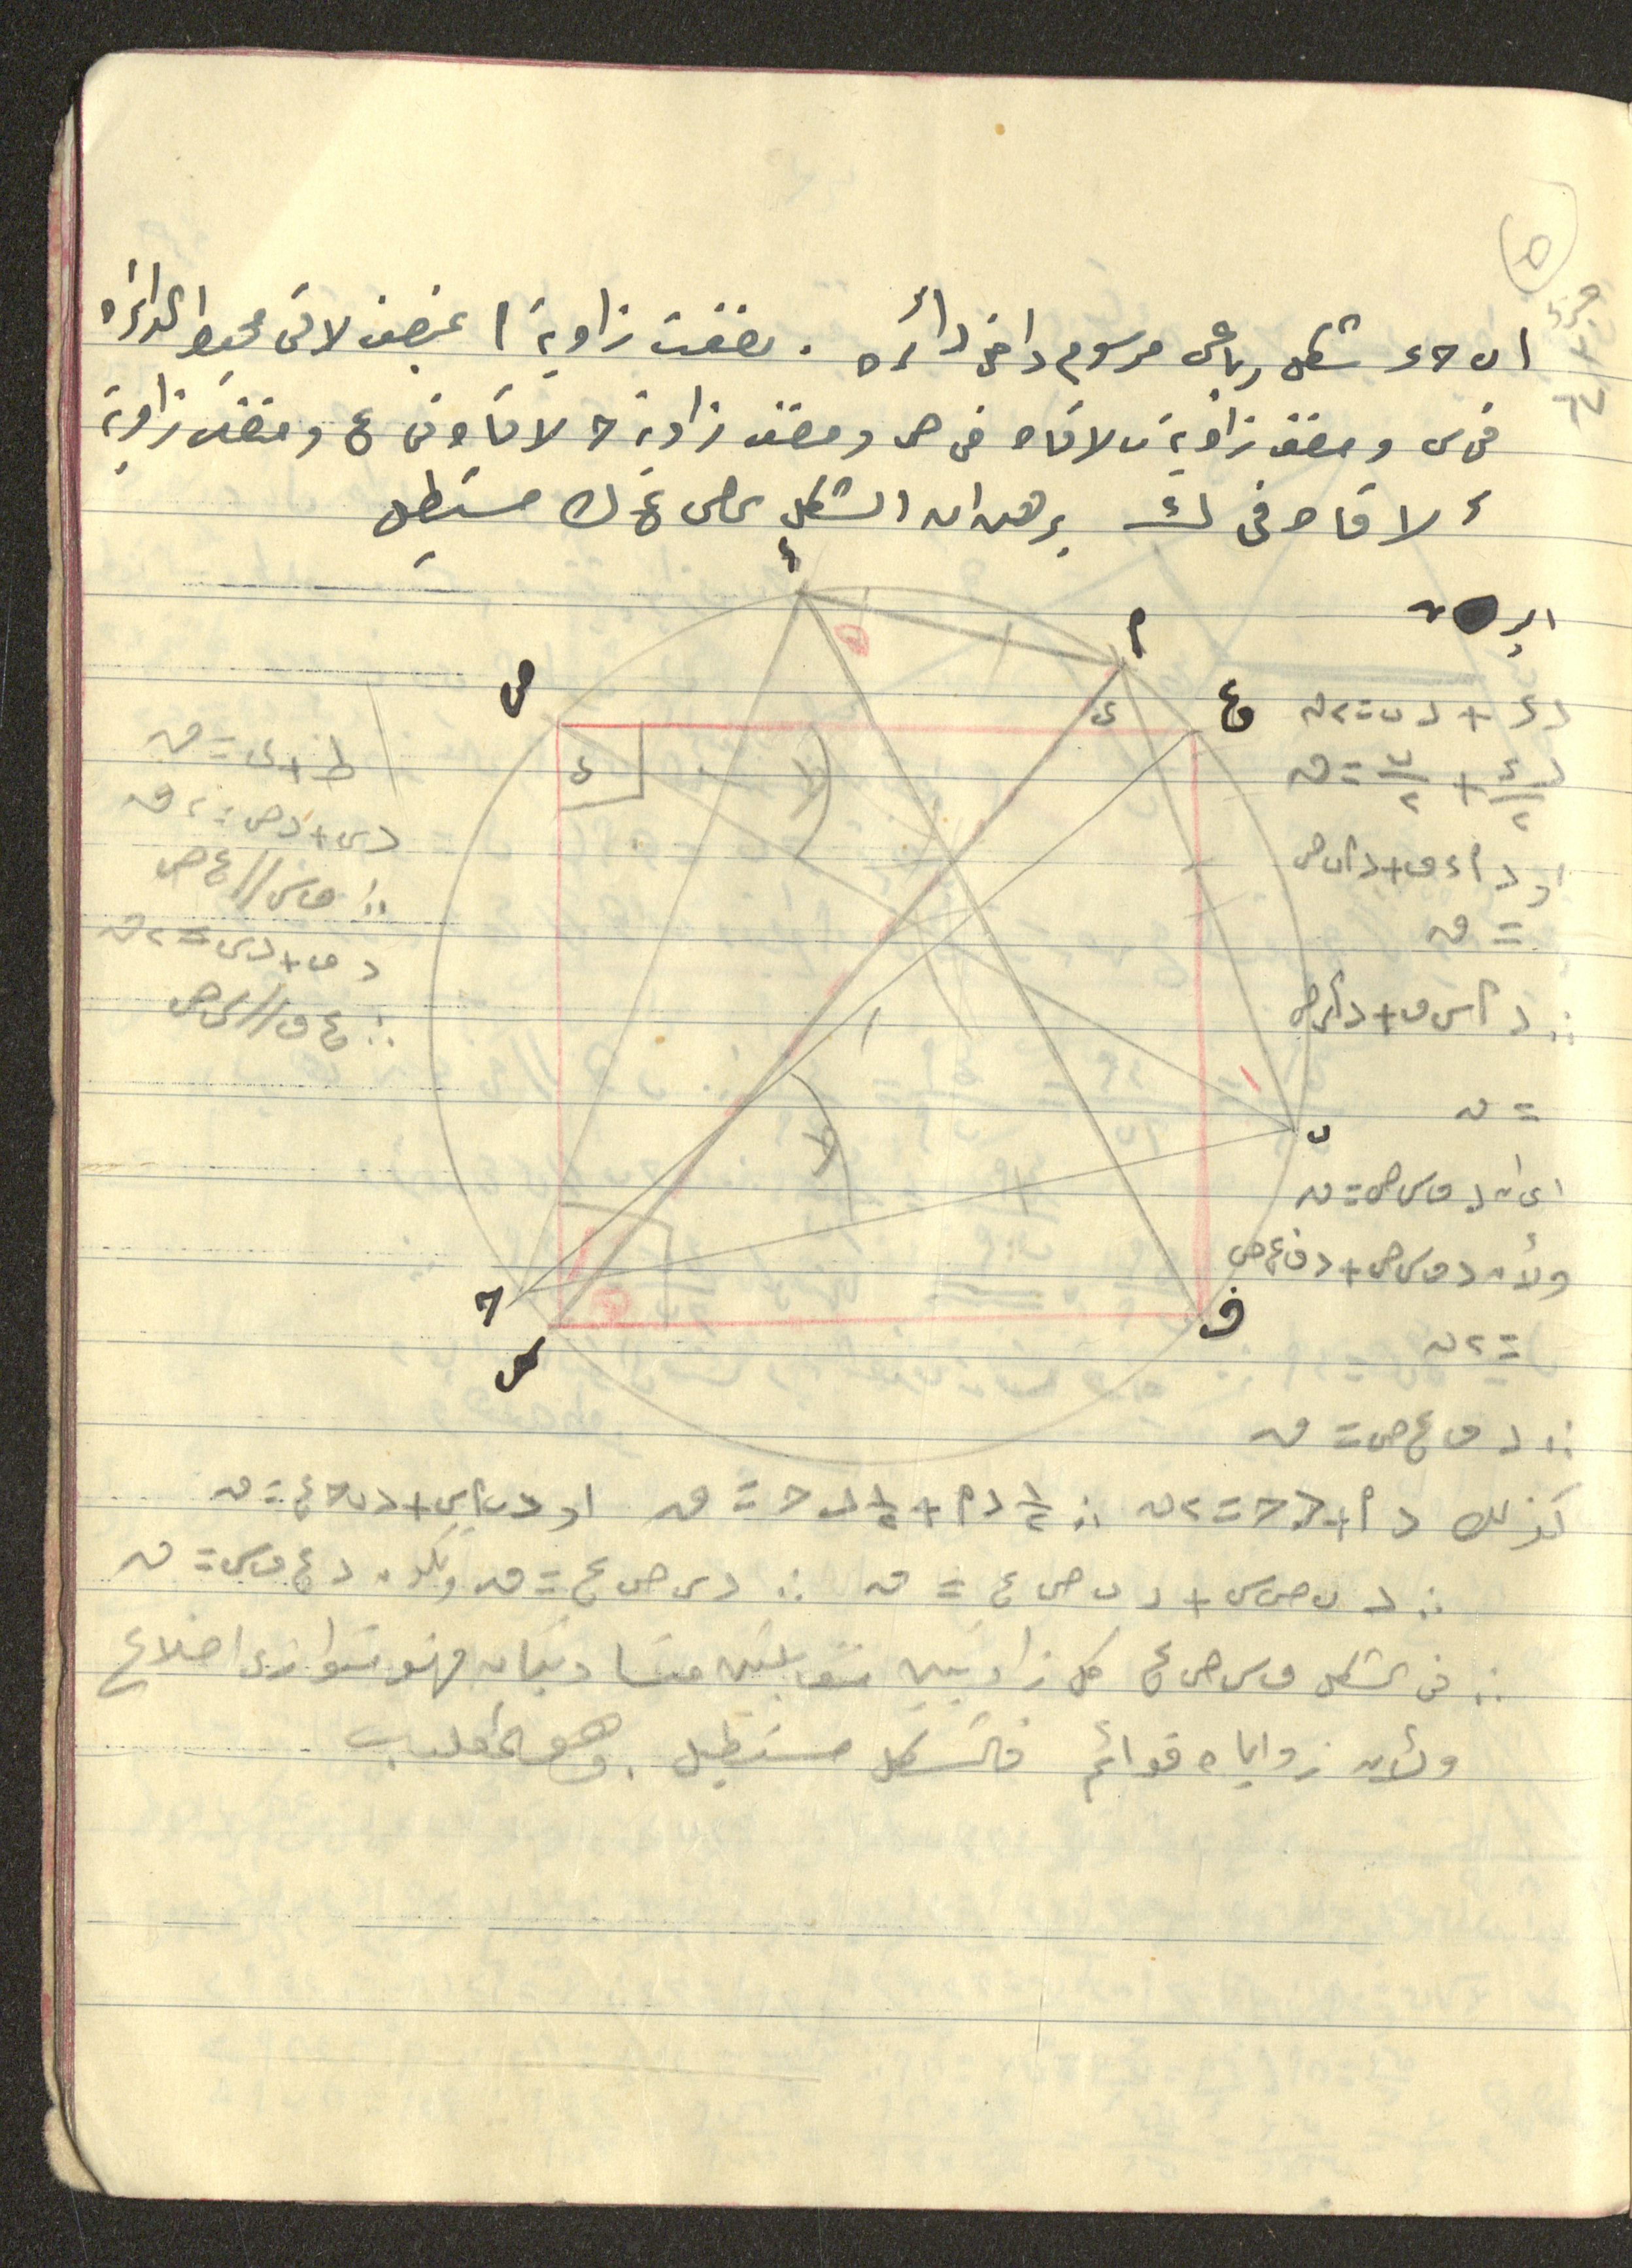 ٥
ا ب حـ ء شكل رباعى مرسوم داخل دائره . نصفت زاوية ا بمنصف لاقى محيط الدائره
فى س ومنصف زاوية ب لاقاه فى ص ومنصف زاوية حـ لاقاه فى ع ومنصف زاوية
ء لاقاه فى ك برهن ان الشكل س ص ع ك مستطيل
ء
ا
ص
ع
ى
ى
ب
حـ
س
ف
د ء + د ب = ٢ ق
د ء/٢ + ب/٢ = ق
او د ا ء ف + د ا ب ص
= ق
∴ د ا س ف + د ا س ص
= ق
اى ان د ف س ص = ق
ولأن د ف س ص + د ف ع ص
= ٢ ق
∴ د ف ع ص = ق
ط + ى = ق
د س + د ص = ٢ ق
∴ ف س // ع ص
د ف + د س = ٢ ق
∴ ع ف // س ص
كذلك د ا + د حـ = ٢ ق ∴ ١/٢ د ا + ١/٢ د حـ = ق او د ب ا س + د ب حـ ع = ق
∴ د ب ص س + د ب ص ع = ق ∴ د س ص ع = ق ويكون د ع ف س = ق
∴ فى الشكل ف س ص ع كل زاويتين متقابلتين متساويتان فهو متوازى اضلاع
ولأن زواياه قوائم فالشكل مستطيل . وهو المطلوب